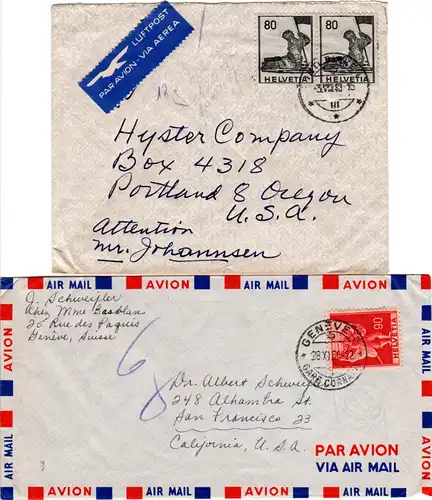 LUFTPOST
PAR AVION-VIA AEREA
80 80
HELVETIA HELVETIA
III
Hyster Company
Box 4318
Portland 8 Oregon
U.S.A.
Attention
Mr. Johannsen
AIR MAIL AVION AIR MAIL AVION AIR MAIL AVION AIR MAIL
J. Schweifler
Chez Mme
25 Rue des Paquis
Genève, Suisse
6
90
HELVETIA
GENÈVE
GARE CORNAVIN
Dr. Albert
248 Alhambra St.
San Francisco 23
California, U.S.A.
PAR AVION
VIA AIR MAIL
AVION AIR MAIL AVION AIR MAIL AVION AIR MAIL AVION